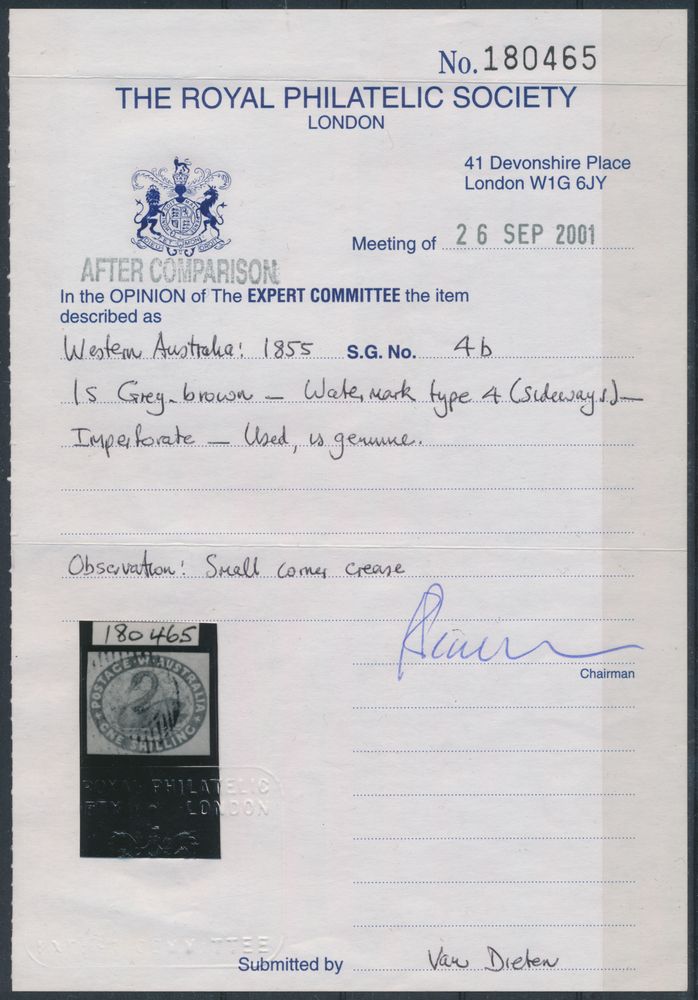 No. 180465
THE ROYAL PHILATELIC SOCIETY
LONDON
41 Devonshire Place
London W1G 6JY
Meeting of 26 SEP 2001
AFTER COMPARISON
In the OPINION of The EXPERT COMMITTEE the item
described as
Western Australia: 1855 S.G. No. 4b
1s Grey-brown – Watermark type 4 (sideways) –
Imperforate – Used, is genuine.
Observation: Small corner crease
180465
POSTAGE W. AUSTRALIA
2
ONE SHILLING
Chairman
ROYAL PHILATELIC
LONDON
Submitted by Van Dieten